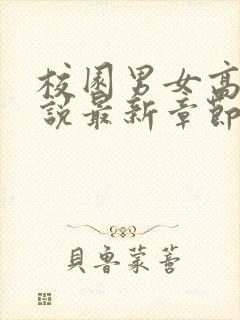 校園男女高
說最新章節
貝魯蒙蒼